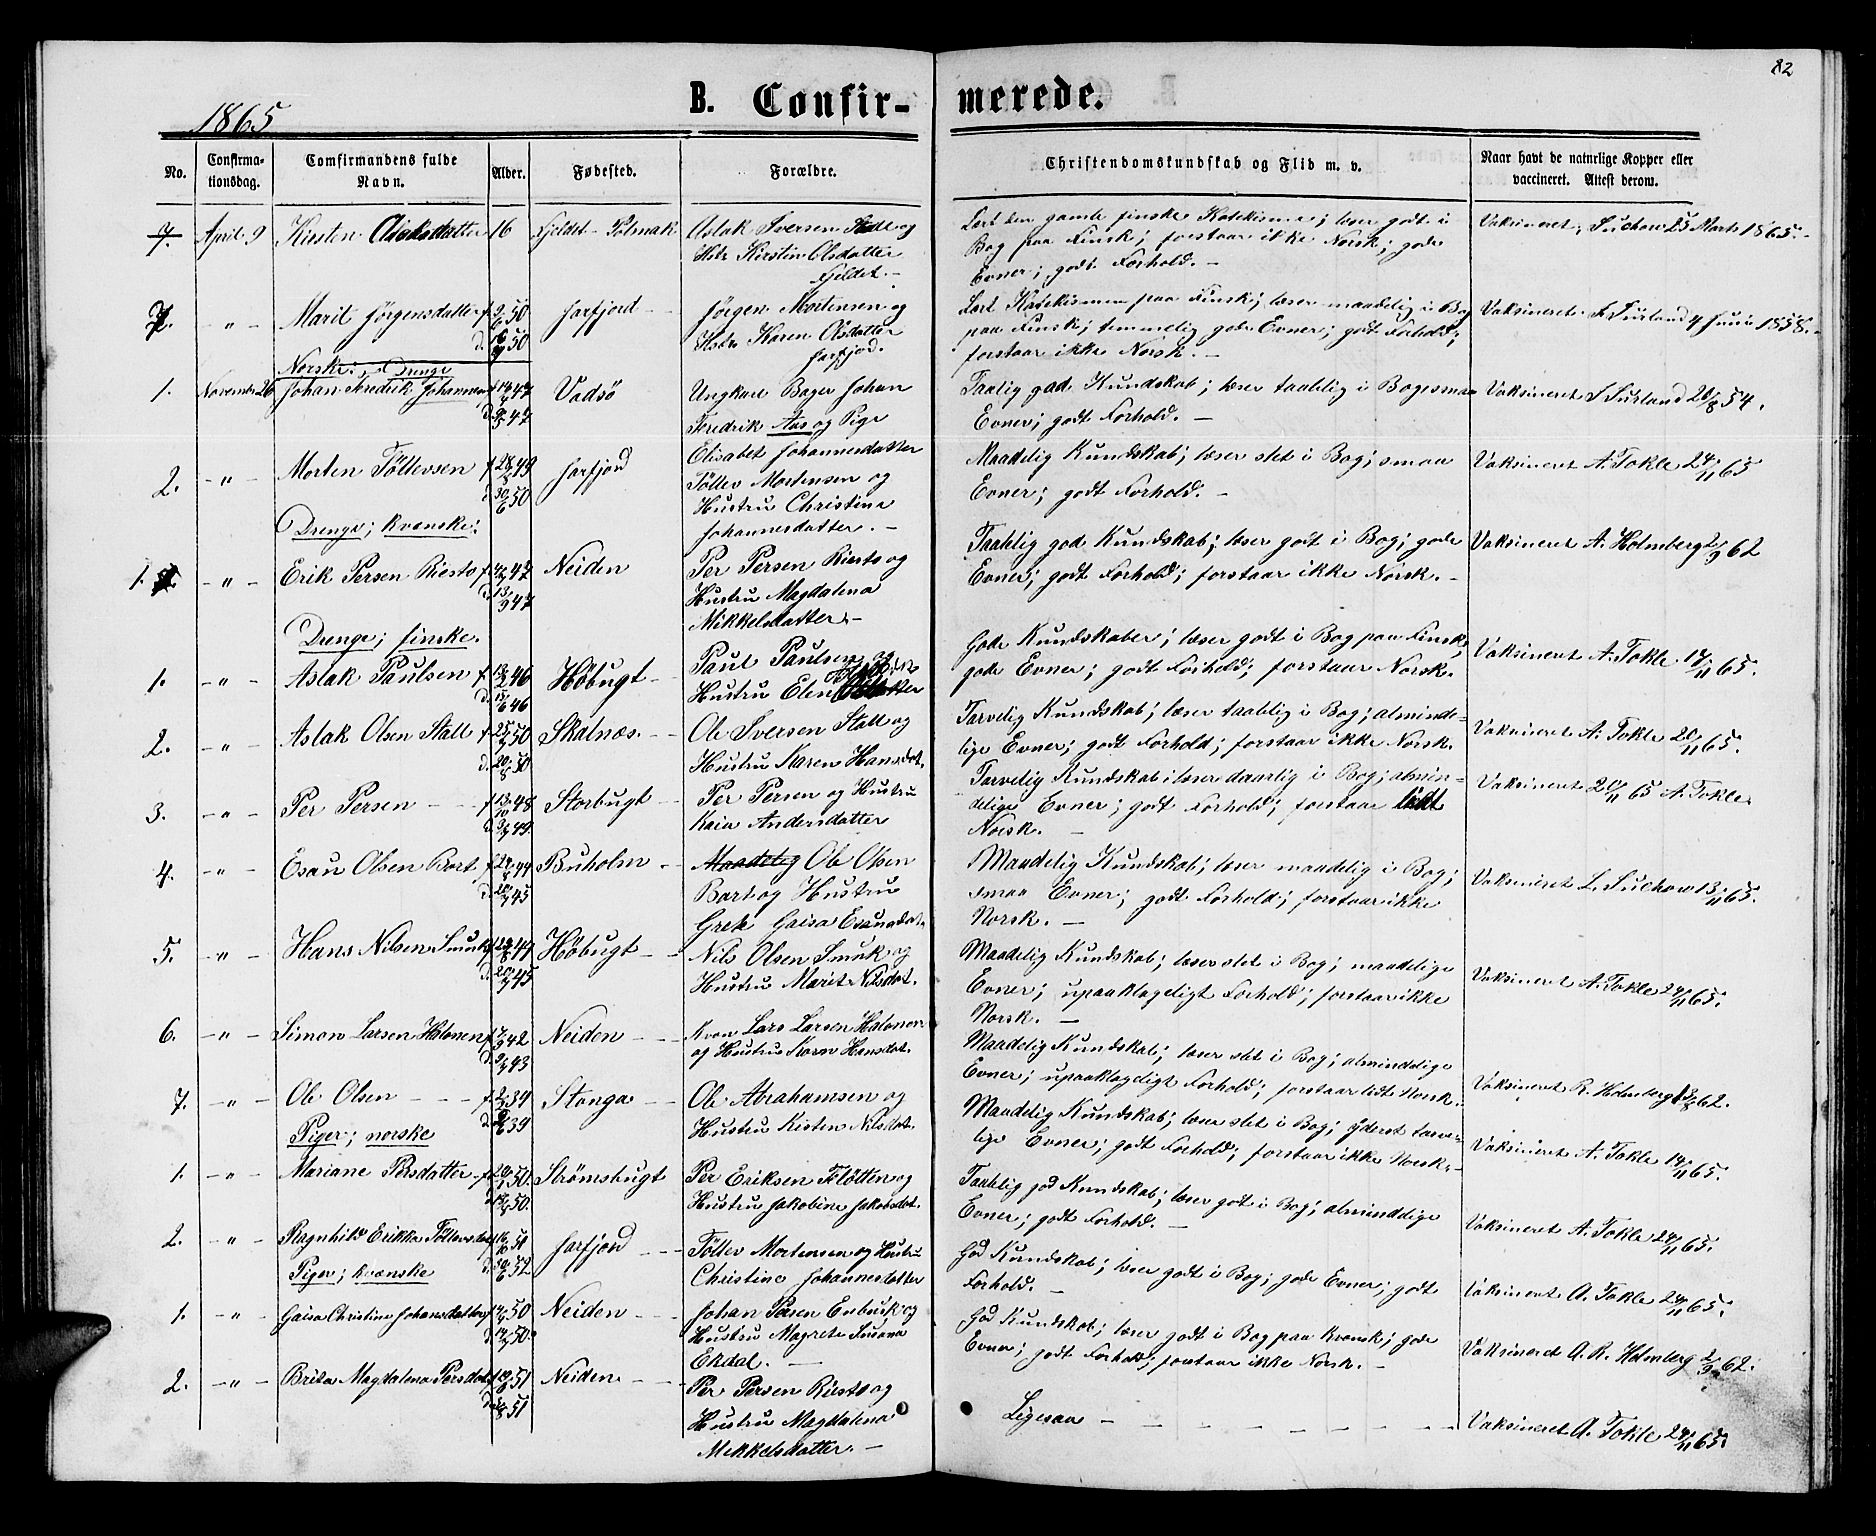 82
1865
B. Confir-
merede.
No.
Confirma-
tionsdag.
Comfirmandens fulde
Navn.
Alder.
Fødested.
Forældre.
Christendomskundskab og Flid m. v.
Naar havt de naturlige Kopper eller
vaccineret. Attest derom.
7. April 9 Kirsten Aslaksdatter 16 Fjeldet - Polmak Aslak Iversen og
Hstr Kirstin Olsdatter
Fjeldet. -
Lært den gamle finske Katekisme; læser godt i
Bog paa Finsk; forstaar ikke Norsk; gode
Evner; godt Forhold. -
Vaksineret, Suchow 25 Marts 1865. -
7. - " - Marit Jørgensdatter f. 50 Jarfjord - -
d. 50
Jørgen Mortensen og
Hstr Karen Olsdatter
Jarfjord.
Lært Katekismen paa Finsk; læser maadelig i Bog
paa Finsk; temmelig gode Evner; godt Forhold;
forstaar ikke Norsk. -
Vaksineret 4 Juni 1858. -
Norske; Drenge
1. November 26 Johan Fredrik Johannesen f. 47 Vadsø
d. 47
Ungkarl Bager Johan
Fredrik Aas og Pige
Elisabet Johannesdatter
Taalig god Kundskab; læser taalelig i Bog; smaa
Evner; godt Forhold. -
Vaksineret 54.
2. - " - Morten Töllevsen f. 49 Jarfjord
d. 30/6 50
Töllev Mortensen og
Hustru Christine
Johannesdatter. -
Maadelig Kundskab; læser slet i Bog; smaa
Evner; godt Forhold. -
Vaksineret A. Tokle 24/11 65
Drenge; kvænske:
1. - " - Erik Persen Riesto f. 47 Neiden
d. 13/9 47
Per Persen Riesto og
Hustru Magdalena
Mikkelsdatter. -
Taalelig god Kundskab; læser godt i Bog; gode
Evner; godt Forhold; forstaar ikke Norsk. -
Vaksineret A. Holmberg 62
Drenge; finske.
1. - " - Aslak Paulsen f. 46 Høbugt -
d. 46
Paul Paulsen og
Hustru Elen
Gode Kundskaber; læser godt i Bog paa Finsk;
gode Evner; godt Forhold; forstaar Norsk.
Vaksineret A. Tokle 65.
2. - " - Aslak Olsen Stall f. 50 Skalnæs. - -
d. 50
Ole Iversen Stall og
Hustru Karen Hansdat.
Tarvelig Kundskab; læser taalelig i Bog; alminde-
lige Evner; godt Forhold; forstaar ikke Norsk.
Vaksineret A. Tokle 20/11 65.
3. - " - Per Persen - - f. 13/10 48 Storbugt - -
d. 49
Per Persen og Hustru
Kaia Andersdatter
Tarvelig Kundskab; læser daarlig i Bog; almin-
delige Evner; godt Forhold; forstaar lidt
Norsk. -
Vaksineret 20/11 65 A. Tokle
4. - " - Esau Olsen Bort f. 44 Buholm - -
d. 45
Maadelig Ole Olsen
Bort og Hustru
Grete Gaisa Esausdat.
Maadelig Kundskab; læser maadelig i Bog;
smaa Evner; godt Forhold; forstaar ikke
Norsk. -
Vaksineret L. Suchow 13/11 65.
5. - " - Hans Nilsen Smuk f. 44 Høbugt - -
d. 45
Nils Olsen Smuk og
Hustru Marit Nilsdat.
Maadelig Kundskab; læser slet i Bog; maadelige
Evner; upaaklageligt Forhold; forstaar ikke
Norsk. -
Vaksineret A. Tokle 24/11 65.
6. - " - Simon Larsen Halonen f. 42 Neiden - - -
d. 43
Kvæn Lars Larsen Halonen
og Hustru Karen Hansdat.
Maadelig Kundskab; læser slet i Bog; almindelige
Evner; upaaklageligt Forhold; forstaar lidt Norsk.
Vaksineret R. Holmberg 62.
7. - " - Ole Olsen - - - f. 34 Stanga - -
d. 39
Ole Abrahamsen og
Hustru Kisten Nilsdat.
Maadelig Kundskab; læser slet i Bog; yderst tarve-
lige Evner; godt Forhold; forstaar ikke Norsk. -
Vaksineret A. Tokle 65.
Piger; norske
1. - " - Mariane Persdatter f. 50. Strømsbugt
d. 50.
Per Eriksen Flötten og
Hustru Jakobine Jakobsdat.
Taalelig god Kundskab; læser godt i Bog; almindelige
Evner; godt Forhold. -
Vaksineret A. Tokle 24/11 65.
2. - " - Ragnhild Erikka Töllevsdat f. 51 Jarfjord - - -
d. 52
Töllev Mortensen og Hustru
Christine Johannesdatter
God Kundskab; læser godt i Bog; gode Evner; godt
Forhold. -
Vaksineret A. Tokle 24/11 65.
Piger; kvænske
1. - " - Gaisa Christine Johansdatter f. 50 Neiden - - -
d. 50.
Johan Persen Enbusk og
Hustru Magrete Susana
Ekdal. -
God Kundskab; læser godt i Bog paa Kvænsk; gode
Evner; godt Forhold; forstaar ikke Norsk. -
Vaksineret A. R. Holmberg 62.
2. - " - Brita Magdalena Persdat f. 51 Neiden. - - -
d. 51
Per Persen Riesto og
Hustru Magdalena
Mikkelsdatter. -
Ligesaa - - - - - - -
Vaksineret A. Tokle 24/11 65.